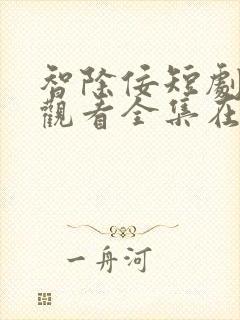 智除佞短劇
觀看全集在
一舟河